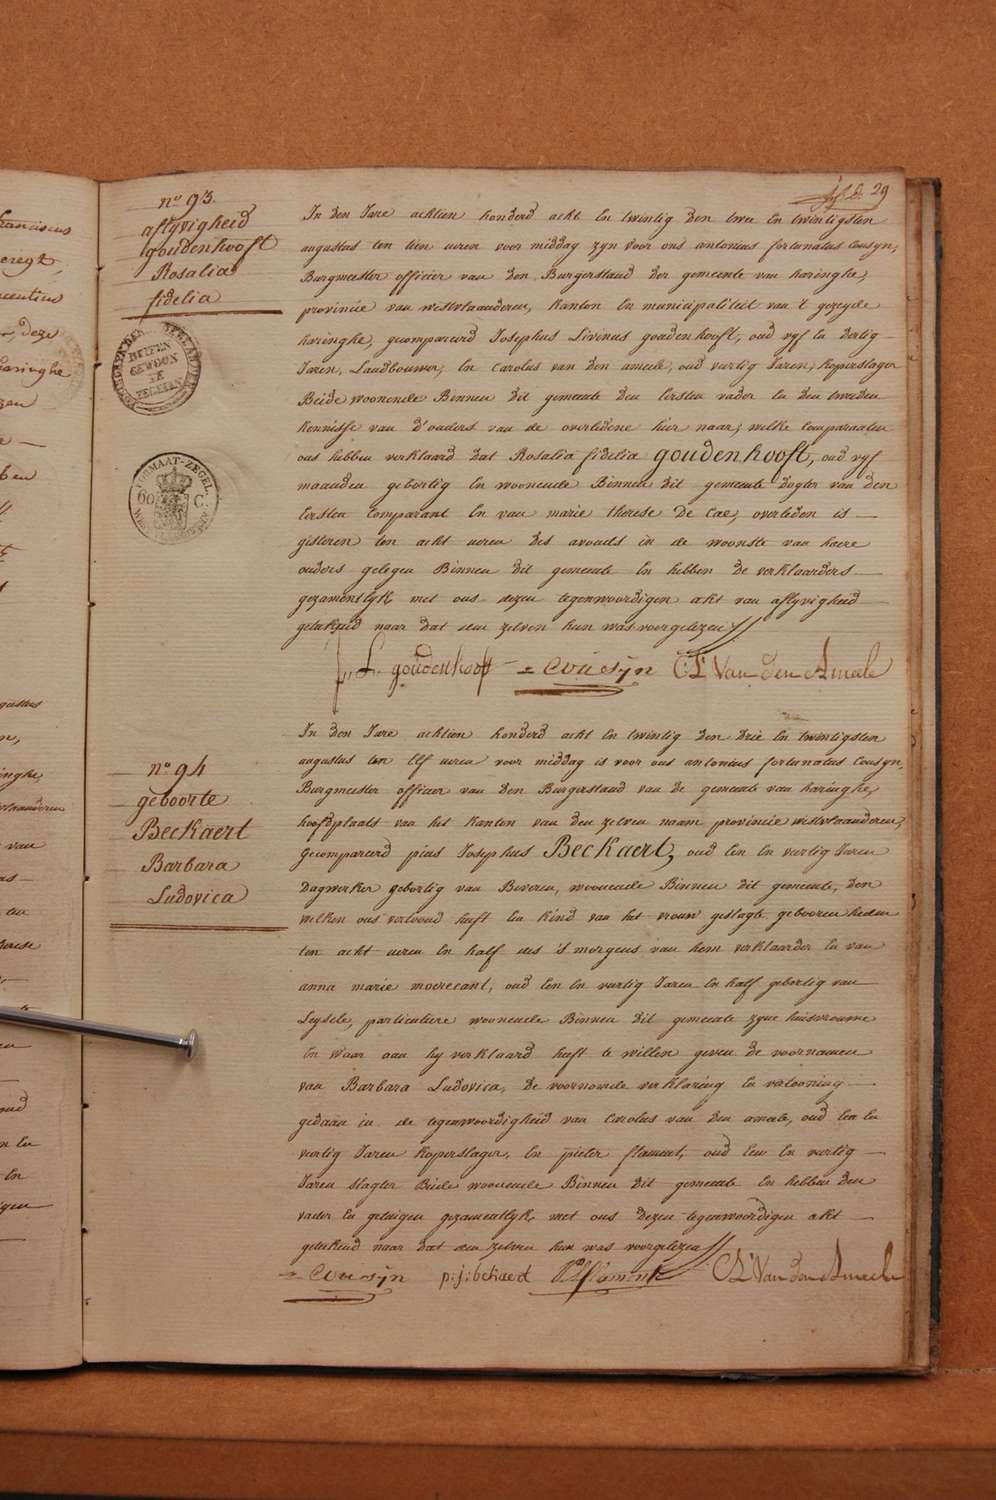 29
n° 93.
aflyvigheid
goudenhooft
Rosalia
fidelia
In den Jare achtien honderd acht en twintig den twee en twintigsten
augustus ten tien uren voor middag zyn voor ons antonius fortunatus Cousyn,
Burgmeester officier van den Burgerstand der gemeente van haringhe,
provincie van westvlaanderen, kanton en municipaliteit van 't gezeyde
haringhe, gecompareerd Josephus Livinus goudenhooft, oud vyf en dertig
Jaren, Landbouwer, en Carolus van den ameele, oud veertig Jaren, koperslager
Beide woonende Binnen dit gemeente den Eersten vader en den tweeden
kennisse van d'ouders van de overledene hier naar, welke comparanten
ons hebben verklaard dat Rosalia fidelia goudenhooft, oud vyf
maanden geboortig en woonende Binnen dit gemeente dogter van den
Eersten Comparant en van marie therese De Cae, overleden is
gisteren ten acht uren des avonds in de woonste van haere
ouders gelegen Binnen dit gemeente en hebben de verklaarders
gezamentlyk met ons dezen tegenwoordigen akt van aflyvigheid
geteekend naar dat den zelven hun was voorgelezen
J: L. goudenhooft Cousijn C: L: Van den Ameele
BUITEN
GEWOON
ZEGEL
FORMAAT-ZEGEL
60 C.
n° 94
geboorte
Beckaert
Barbara
Ludovica
In den Jare achtien honderd acht en twintig den drie en twintigsten
augustus ten Elf uren voor middag is voor ons antonius fortunatus Cousyn,
Burgmeester officier van den Burgerstand van de gemeente van haringhe,
hoofdplaats van het kanton van den zelven naam provincie westvlaanderen,
gecompareerd pius Josephus Beckaert, oud een en veertig Jaren
Dagwerker geboortig van Beveren, woonende Binnen dit gemeente, den
welken ons vertoond heeft een kind van het vrouw geslagte gebooren heden
ten acht uren en half des 's morgens van hem verklaarder en van
anna marie, oud een en veertig Jaren en half geboortig van
Leysele, particuliere woonende Binnen dit gemeente zyne huisvrouwe
en waar aan hy verklaard heeft te willen geven de voornamen
van Barbara Ludovica, de voornoemde verklaring en vertooning
gedaan in de tegenwoordigheid van Carolus van den ameele, oud een en
veertig Jaren koperslager, en pieter flament, oud een en veertig
Jaren slagter Beide woonende Binnen dit gemeente en hebben den
vader en getuigen gezamentlyk met ons dezen tegenwoordigen akt
geteekend naar dat den zelven hun was voorgelezen
Cousijn p: j: bekaerd flamint C: L: Van den Ameele